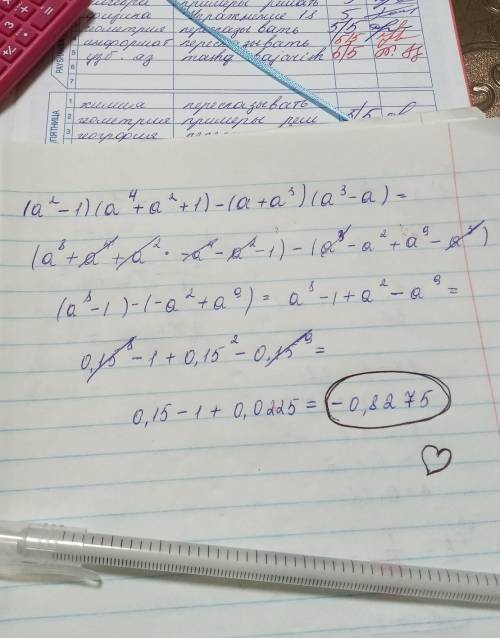 примеры решать
физика упражнение 18 5
геометрия пересказывать 5/5
информат пересказывать 5/5
узб. яз 5/5
6
7
ПЯТНИЦА
1 химия пересказывать
2 геометрия примеры реш 5/5
3 география
(a² - 1)(a⁴ + a² + 1) - (a + a³)(a³ - a) =
(a⁸ + a⁴ + a² · - a⁴ - a² - 1) - (a³ - a² + a⁹ - a³)
(a⁸ - 1) - (-a² + a⁹) = a⁸ - 1 + a² - a⁹ =
0,15⁸ - 1 + 0,15² - 0,15⁹ =
0,15 - 1 + 0,0225 = -0,8275